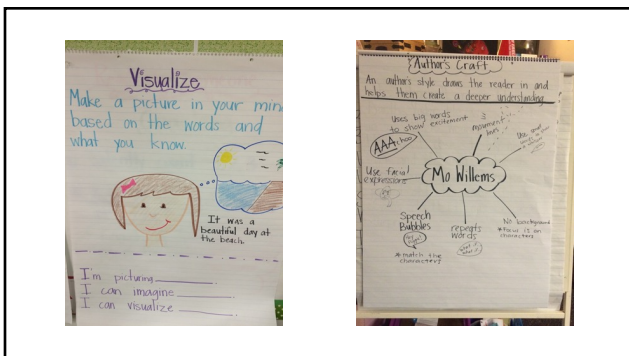 Visualize
Make a picture in your min
based on the words and
what you know.
It was a
beautiful day at
the beach.
I'm picturing
I can imagine
I can visualize
Author's Craft
An author's style draws the reader in and
helps them create a deeper understanding
Uses big words
to show excitement
AAAchoo
movement
lines
Use facial
expressions
Mo Willems
Speech
Bubbles
*match the
characters
repeats
words
No background
*Focus is on
characters